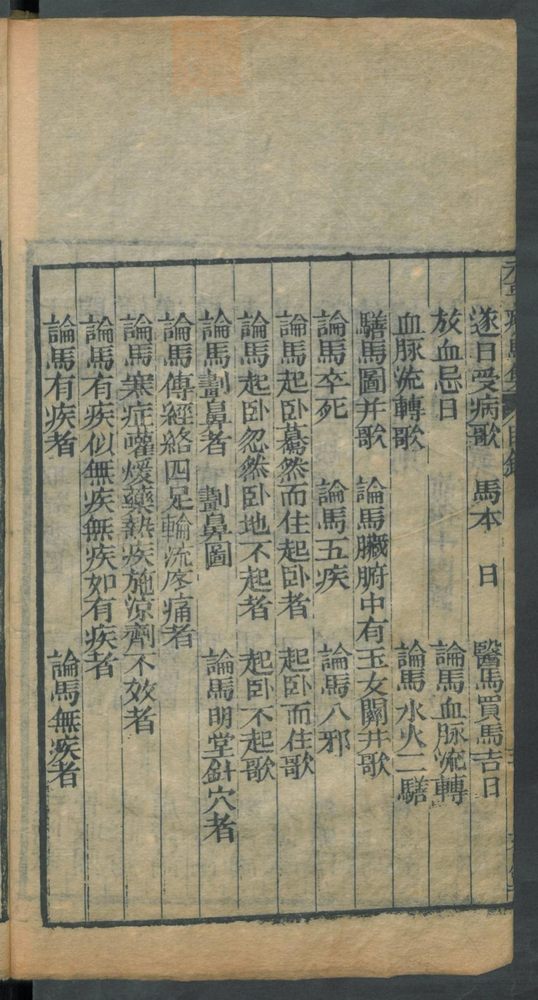 逐日受病歌　馬本　日　醫馬買馬吉日
放血忌日　論馬血脉流轉
血脉流轉歌　論馬水火二騸
騸馬圖并歌　論馬臟腑中有玉女關并歌
論馬卒死　論馬五疾　論馬八邪
論馬起卧驀然而住起卧者　起卧而住歌
論馬起卧忽然卧地不起者　起卧不起歌
論馬劃鼻者　劃鼻圖　論馬明堂針穴者
論馬傳經絡四足輪流疼痛者
論馬寒症嚾煖藥熱疾施涼劑不效者
論馬有疾似無疾無疾如有疾者
論馬有疾者　論馬無疾者